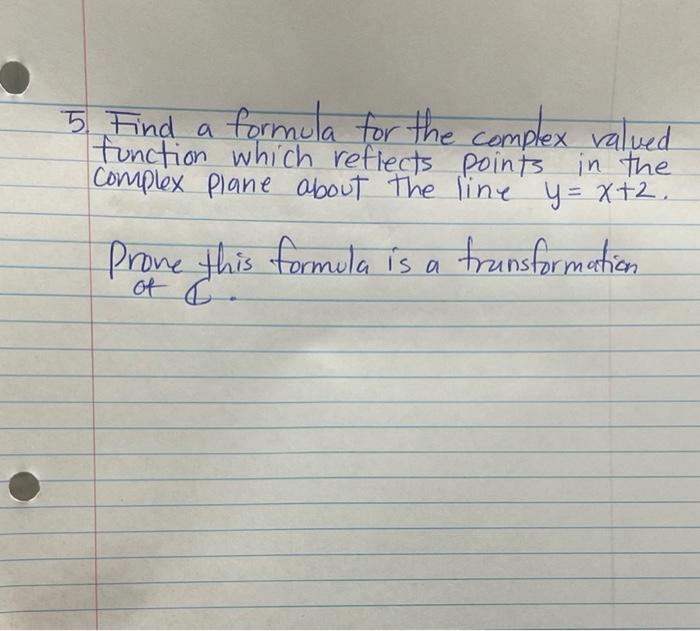 5. Find a formula for the complex valued
function which reflects points in the
complex plane about the line y = x+2.
Prove this formula is a transformation
of ℂ.